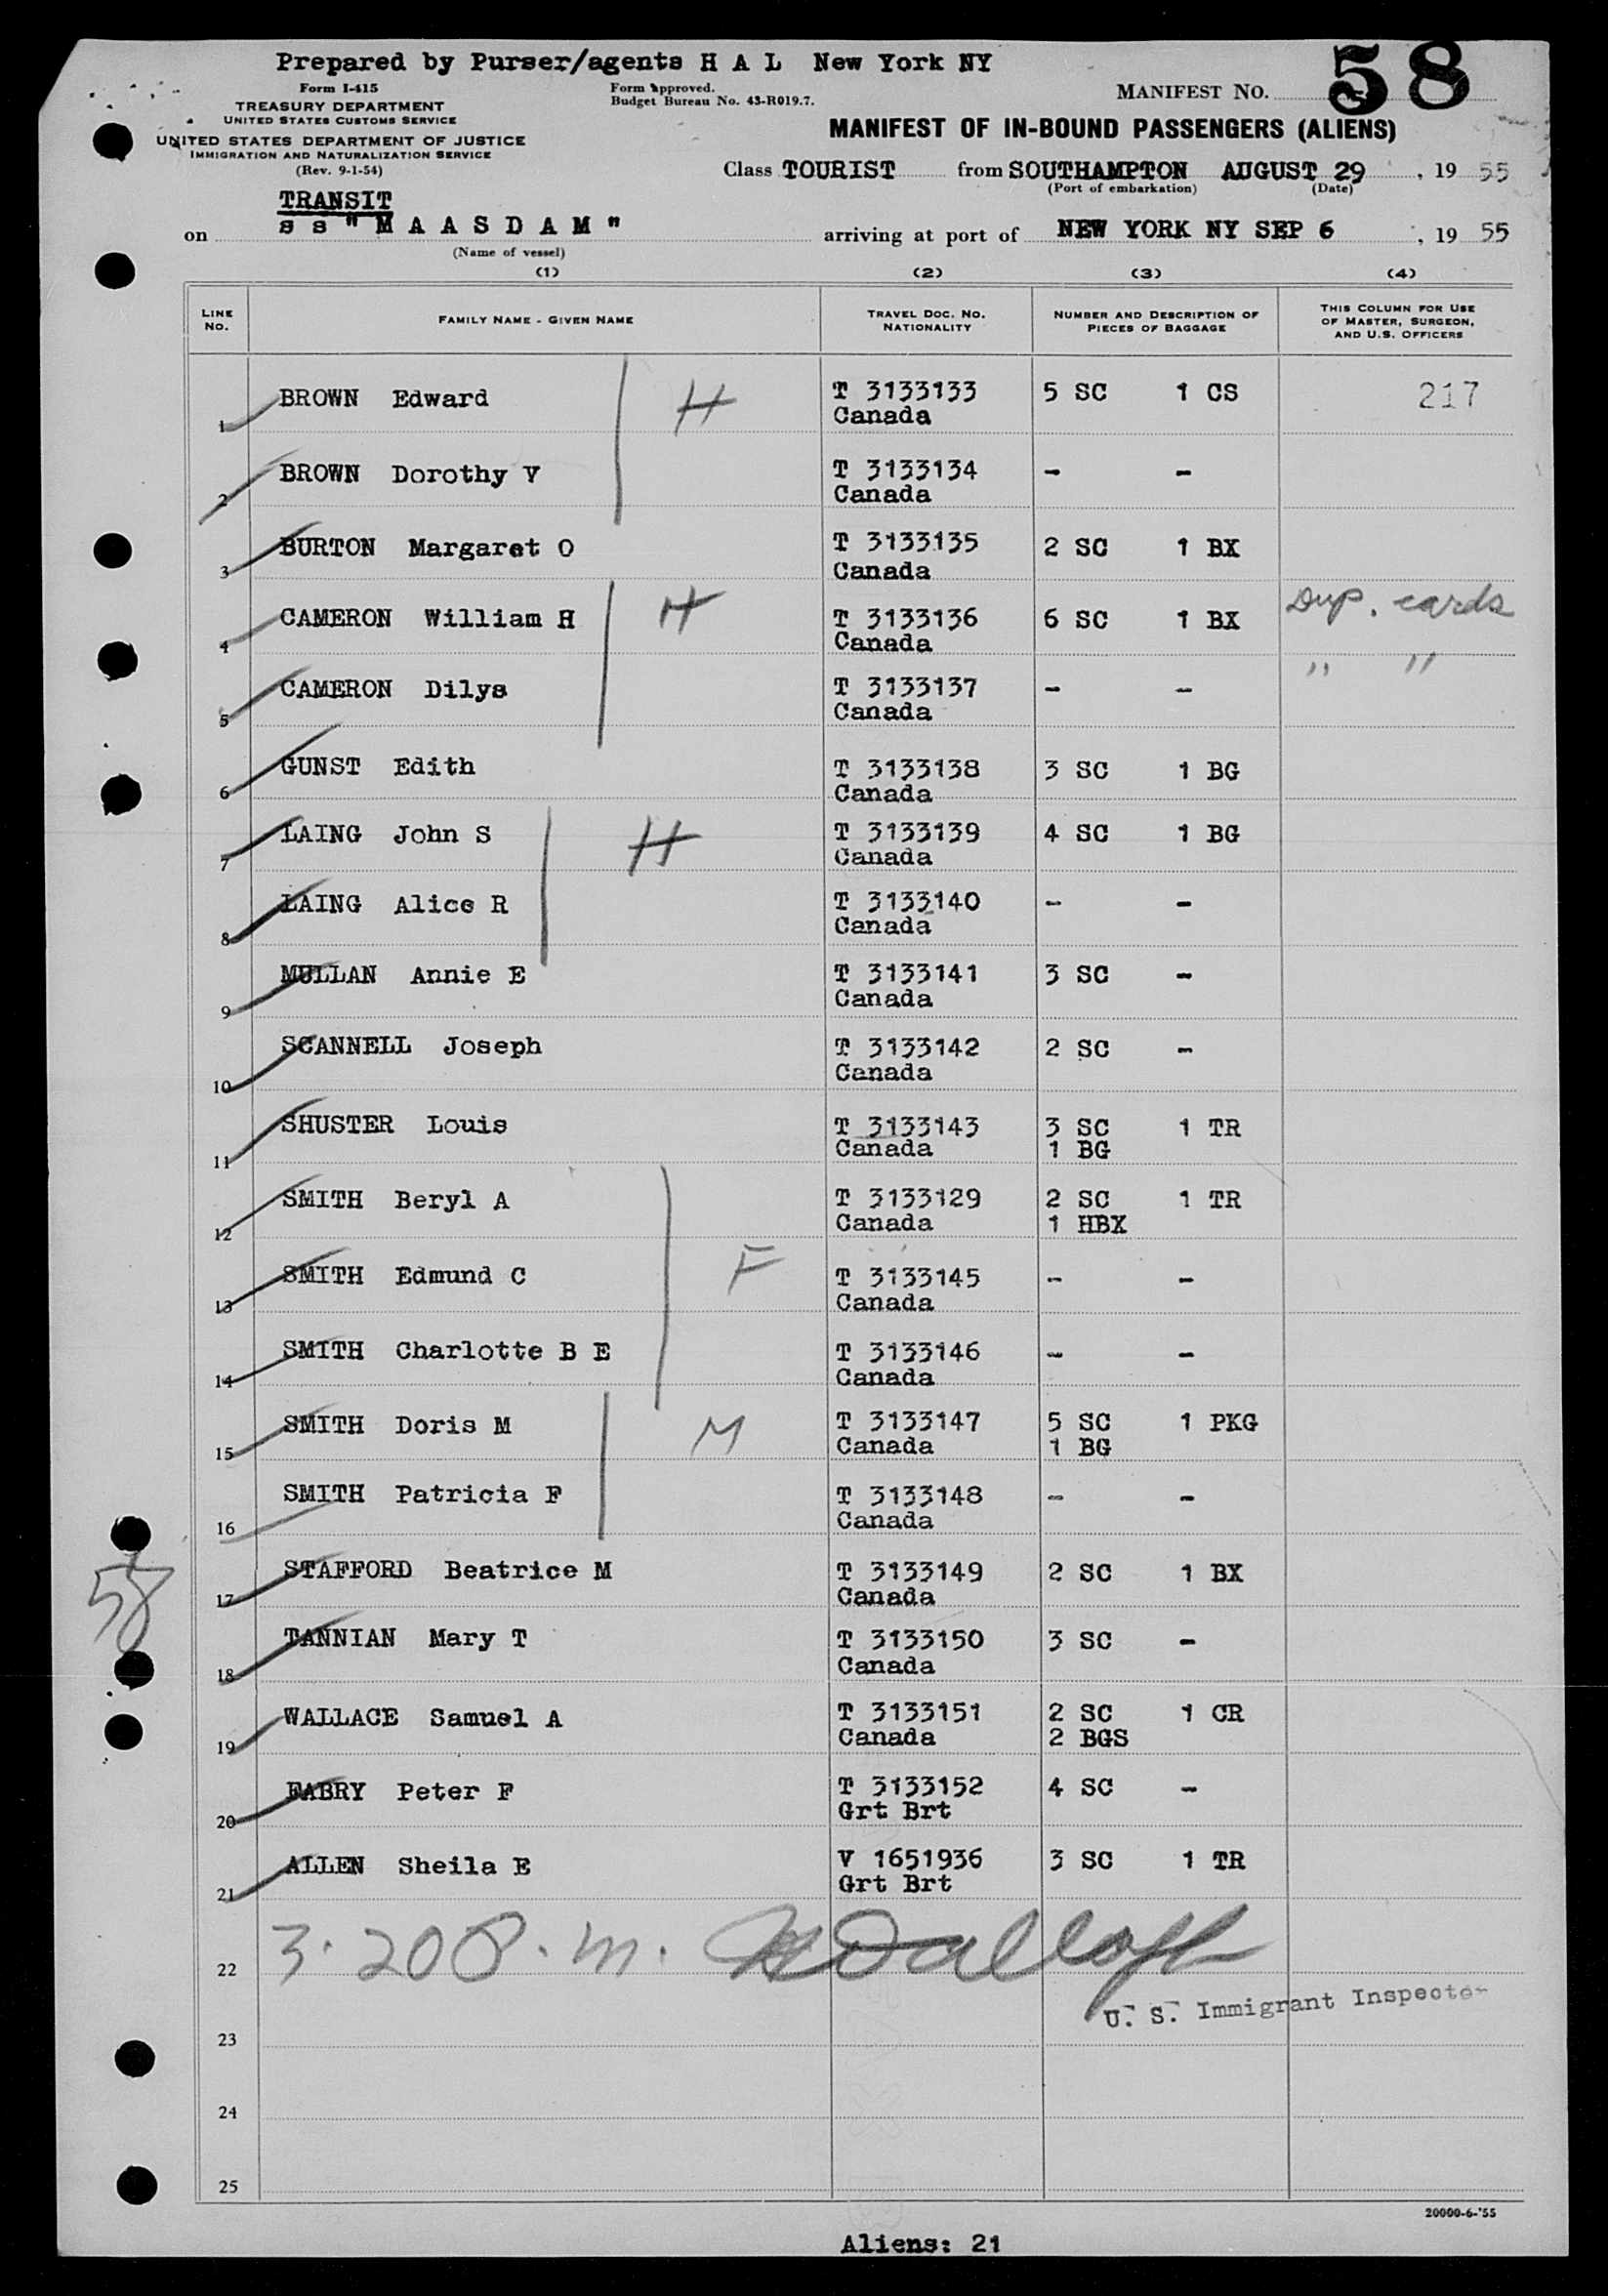 Prepared by Purser/agents H A L New York NY
58
Form I-415
TREASURY DEPARTMENT
UNITED STATES CUSTOMS SERVICE
UNITED STATES DEPARTMENT OF JUSTICE
IMMIGRATION AND NATURALIZATION SERVICE
(Rev. 9-1-54)
Form approved.
Budget Bureau No. 43-R019.7.
MANIFEST NO.
MANIFEST OF IN-BOUND PASSENGERS (ALIENS)
Class TOURIST from SOUTHAMPTON AUGUST 29, 19 55
(Port of embarkation) (Date)
TRANSIT
on s s "M A A S D A M" arriving at port of NEW YORK NY SEP 6, 19 55
(Name of vessel)
(1) (2) (3) (4)
LINE NO. FAMILY NAME - GIVEN NAME TRAVEL DOC. NO. NATIONALITY NUMBER AND DESCRIPTION OF PIECES OF BAGGAGE THIS COLUMN FOR USE OF MASTER, SURGEON, AND U.S. OFFICERS
1 BROWN Edward H T 3133133 5 SC 1 CS 217
Canada
2 BROWN Dorothy V T 3133134 - -
Canada
3 BURTON Margaret O T 3133135 2 SC 1 BX
Canada
4 CAMERON William H H T 3133136 6 SC 1 BX Dup. cards
Canada
5 CAMERON Dilys T 3133137 - - " "
Canada
6 GUNST Edith T 3133138 3 SC 1 BG
Canada
7 LAING John S H T 3133139 4 SC 1 BG
Canada
8 LAING Alice R T 3133140 - -
Canada
9 MULLAN Annie E T 3133141 3 SC -
Canada
10 SCANNELL Joseph T 3133142 2 SC -
Canada
11 SHUSTER Louis T 3133143 3 SC 1 TR
Canada 1 BG
12 SMITH Beryl A T 3133129 2 SC 1 TR
Canada 1 HBX
13 SMITH Edmund C F T 3133145 - -
Canada
14 SMITH Charlotte B E T 3133146 - -
Canada
15 SMITH Doris M M T 3133147 5 SC 1 PKG
Canada 1 BG
16 SMITH Patricia F T 3133148 - -
Canada
58
17 STAFFORD Beatrice M T 3133149 2 SC 1 BX
Canada
18 TANNIAN Mary T T 3133150 3 SC -
Canada
19 WALLACE Samuel A T 3133151 2 SC 1 CR
Canada 2 BGS
20 FABRY Peter F T 3133152 4 SC -
Grt Brt
21 ALLEN Sheila E V 1651936 3 SC 1 TR
Grt Brt
22 3.20 P.M.
U. S. Immigrant Inspector
23
24
25
20000-6-'55
Aliens: 21